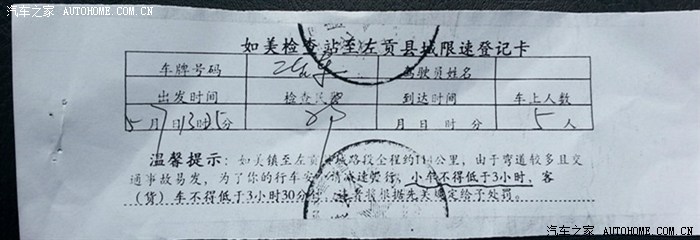 汽车之家 AUTOHOME.COM.CN
如美检查站至左贡县城限速登记卡
车牌号码 驾驶员姓名
出发时间 检查民警 到达时间 车上人数
5月7日13时35分 月 日 时 分 5人
温馨提示：如美镇至左贡县城路段全程约 公里，由于弯道较多且交
通事故易发，为了你的行车安 请减速慢行，小车不得低于3小时，客
（货）车不得低于3小时30分 ，违者将根据 规定给于处罚。
汽车之家 AUTOHOME.COM.CN